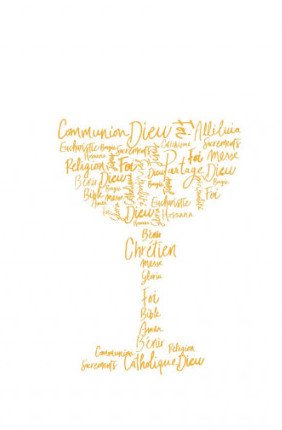 Communion Dieu Foi Alléluia
Eucharistie Bougie Sacrements Catéchisme Sacrements
Hosanna
Religion Foi Partage Foi Messe
Bénir Dieu Dieu Dieu
Bougie Bougie
Bible Messe Eucharistie Foi
Dieu Hosanna
Bénir
Chrétien
Messe
Gloria
Foi
Bible
Amen
Bénir
Communion Religion
Sacrements Catholique Dieu